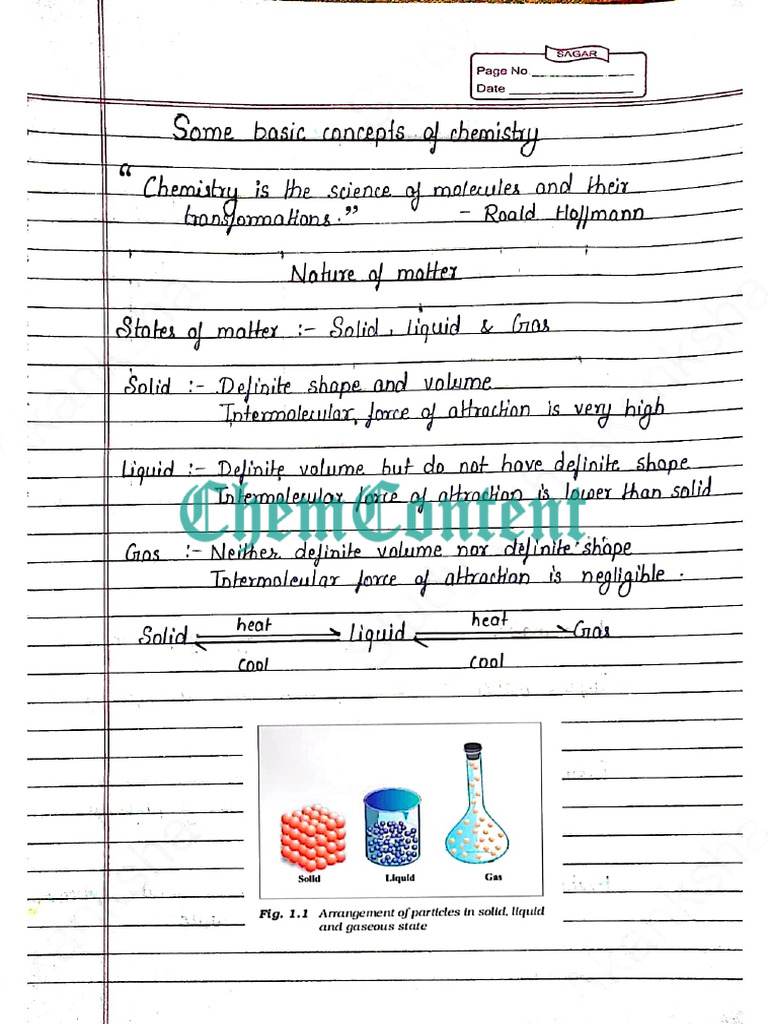 SAGAR
Page No.
Date
Some basic concepts of chemistry
“Chemistry is the science of molecules and their
transformations.” – Roald Hoffmann
Nature of matter
States of matter :- Solid, liquid & Gas
Solid :- Definite shape and volume
Intermolecular force of attraction is very high
Liquid :- Definite volume but do not have definite shape
Intermolecular force of attraction is lower than solid
ChemContent
Gas :- Neither definite volume nor definite shape
Intermoleular force of attraction is negligible.
heat heat
Solid Liquid Gas
cool cool
Solid Liquid Gas
Fig. 1.1 Arrangement of particles in solid, liquid
and gaseous state